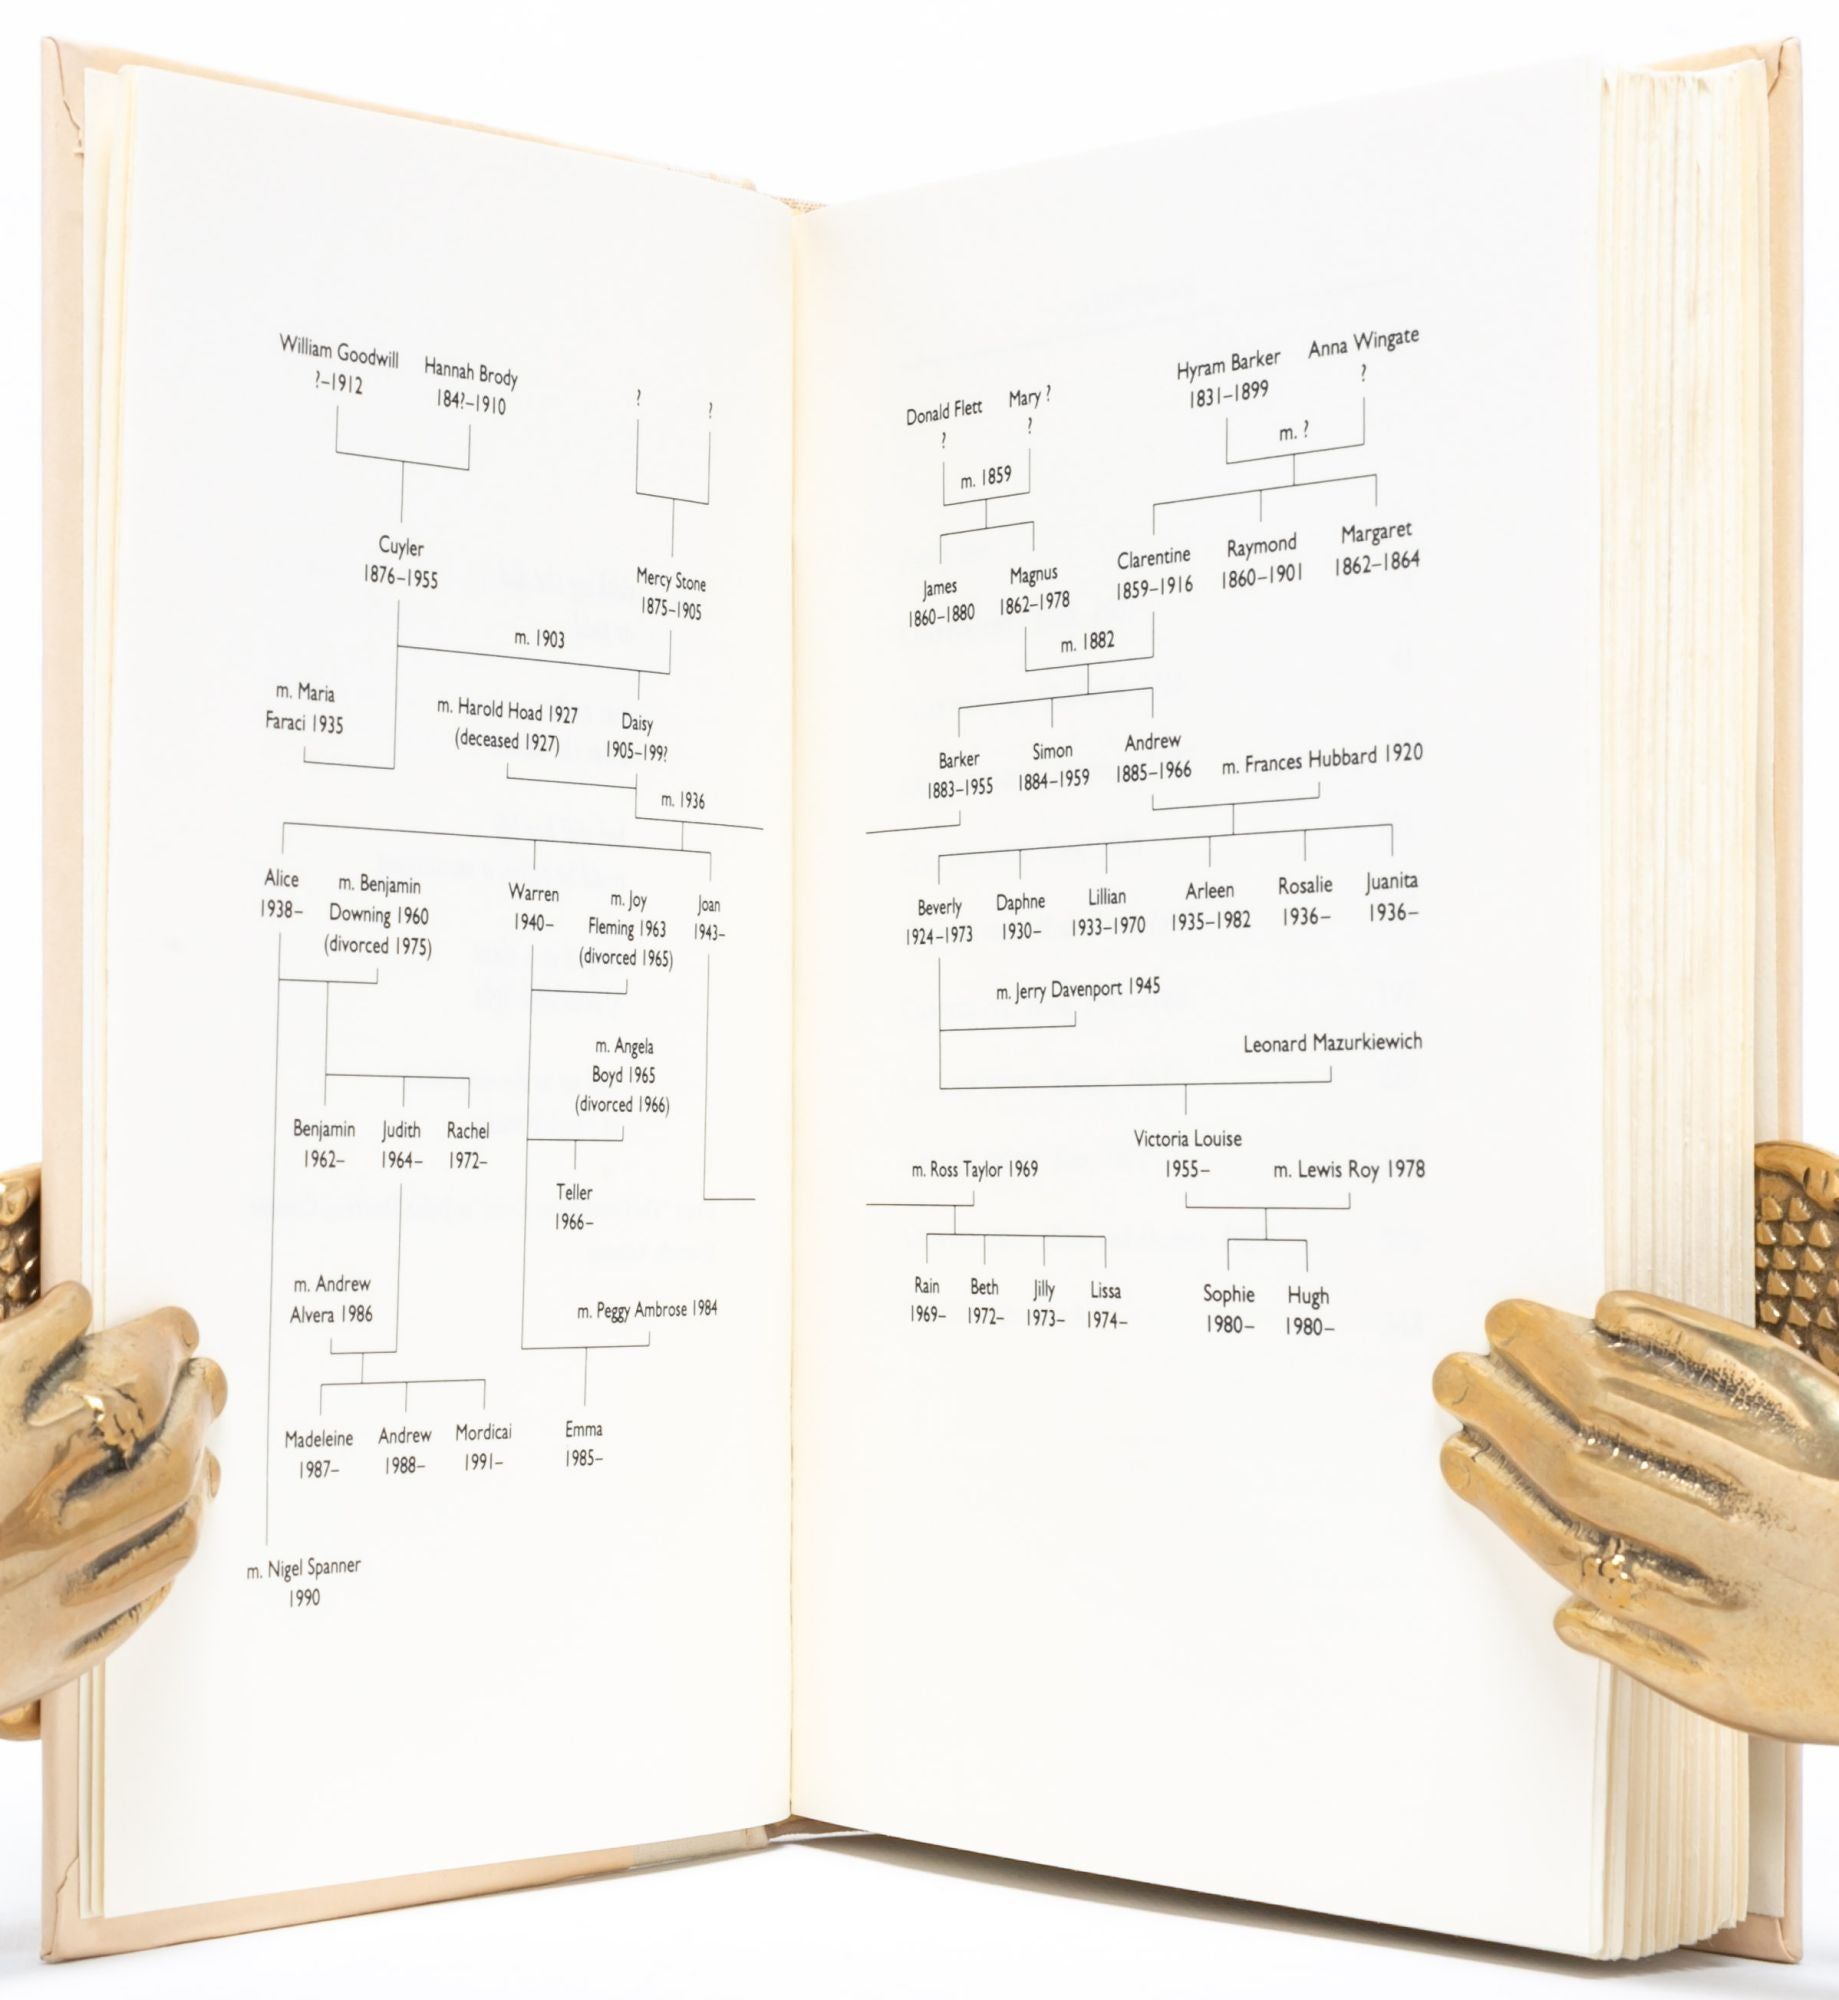 William Goodwill
?–1912
Hannah Brody
184?–1910
?
?
Cuyler
1876–1955
Mercy Stone
1875–1905
m. 1903
m. Maria
Faraci 1935
m. Harold Hoad 1927
(deceased 1927)
Daisy
1905–199?
m. 1936
Alice
1938–
m. Benjamin
Downing 1960
(divorced 1975)
Warren
1940–
m. Joy
Fleming 1963
(divorced 1965)
Joan
1943–
m. Angela
Boyd 1965
(divorced 1966)
Benjamin
1962–
Judith
1964–
Rachel
1972–
Teller
1966–
m. Andrew
Alvera 1986
m. Peggy Ambrose 1984
Madeleine
1987–
Andrew
1988–
Mordicai
1991–
Emma
1985–
m. Nigel Spanner
1990
Donald Flett
?
Mary ?
?
m. 1859
Hyram Barker
1831–1899
Anna Wingate
?
m. ?
James
1860–1880
Magnus
1862–1978
Clarentine
1859–1916
Raymond
1860–1901
Margaret
1862–1864
m. 1882
Barker
1883–1955
Simon
1884–1959
Andrew
1885–1966
m. Frances Hubbard 1920
Beverly
1924–1973
Daphne
1930–
Lillian
1933–1970
Arleen
1935–1982
Rosalie
1936–
Juanita
1936–
m. Jerry Davenport 1945
Leonard Mazurkiewich
Victoria Louise
1955–
m. Ross Taylor 1969
m. Lewis Roy 1978
Rain
1969–
Beth
1972–
Jilly
1973–
Lissa
1974–
Sophie
1980–
Hugh
1980–